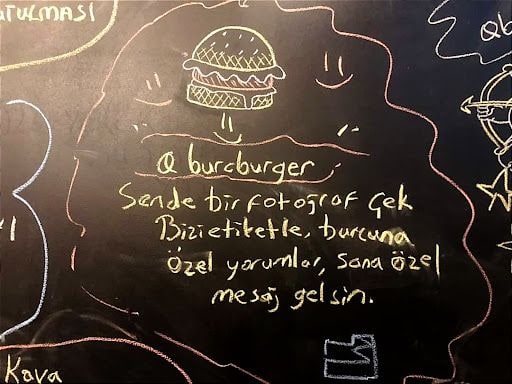 UTULMASI
Qb
@ burcburger
Sende bir fotoğraf Çek
Bizi etiketle, burcuna
özel yorumlar, sana özel
mesaj gelsin.
Kova